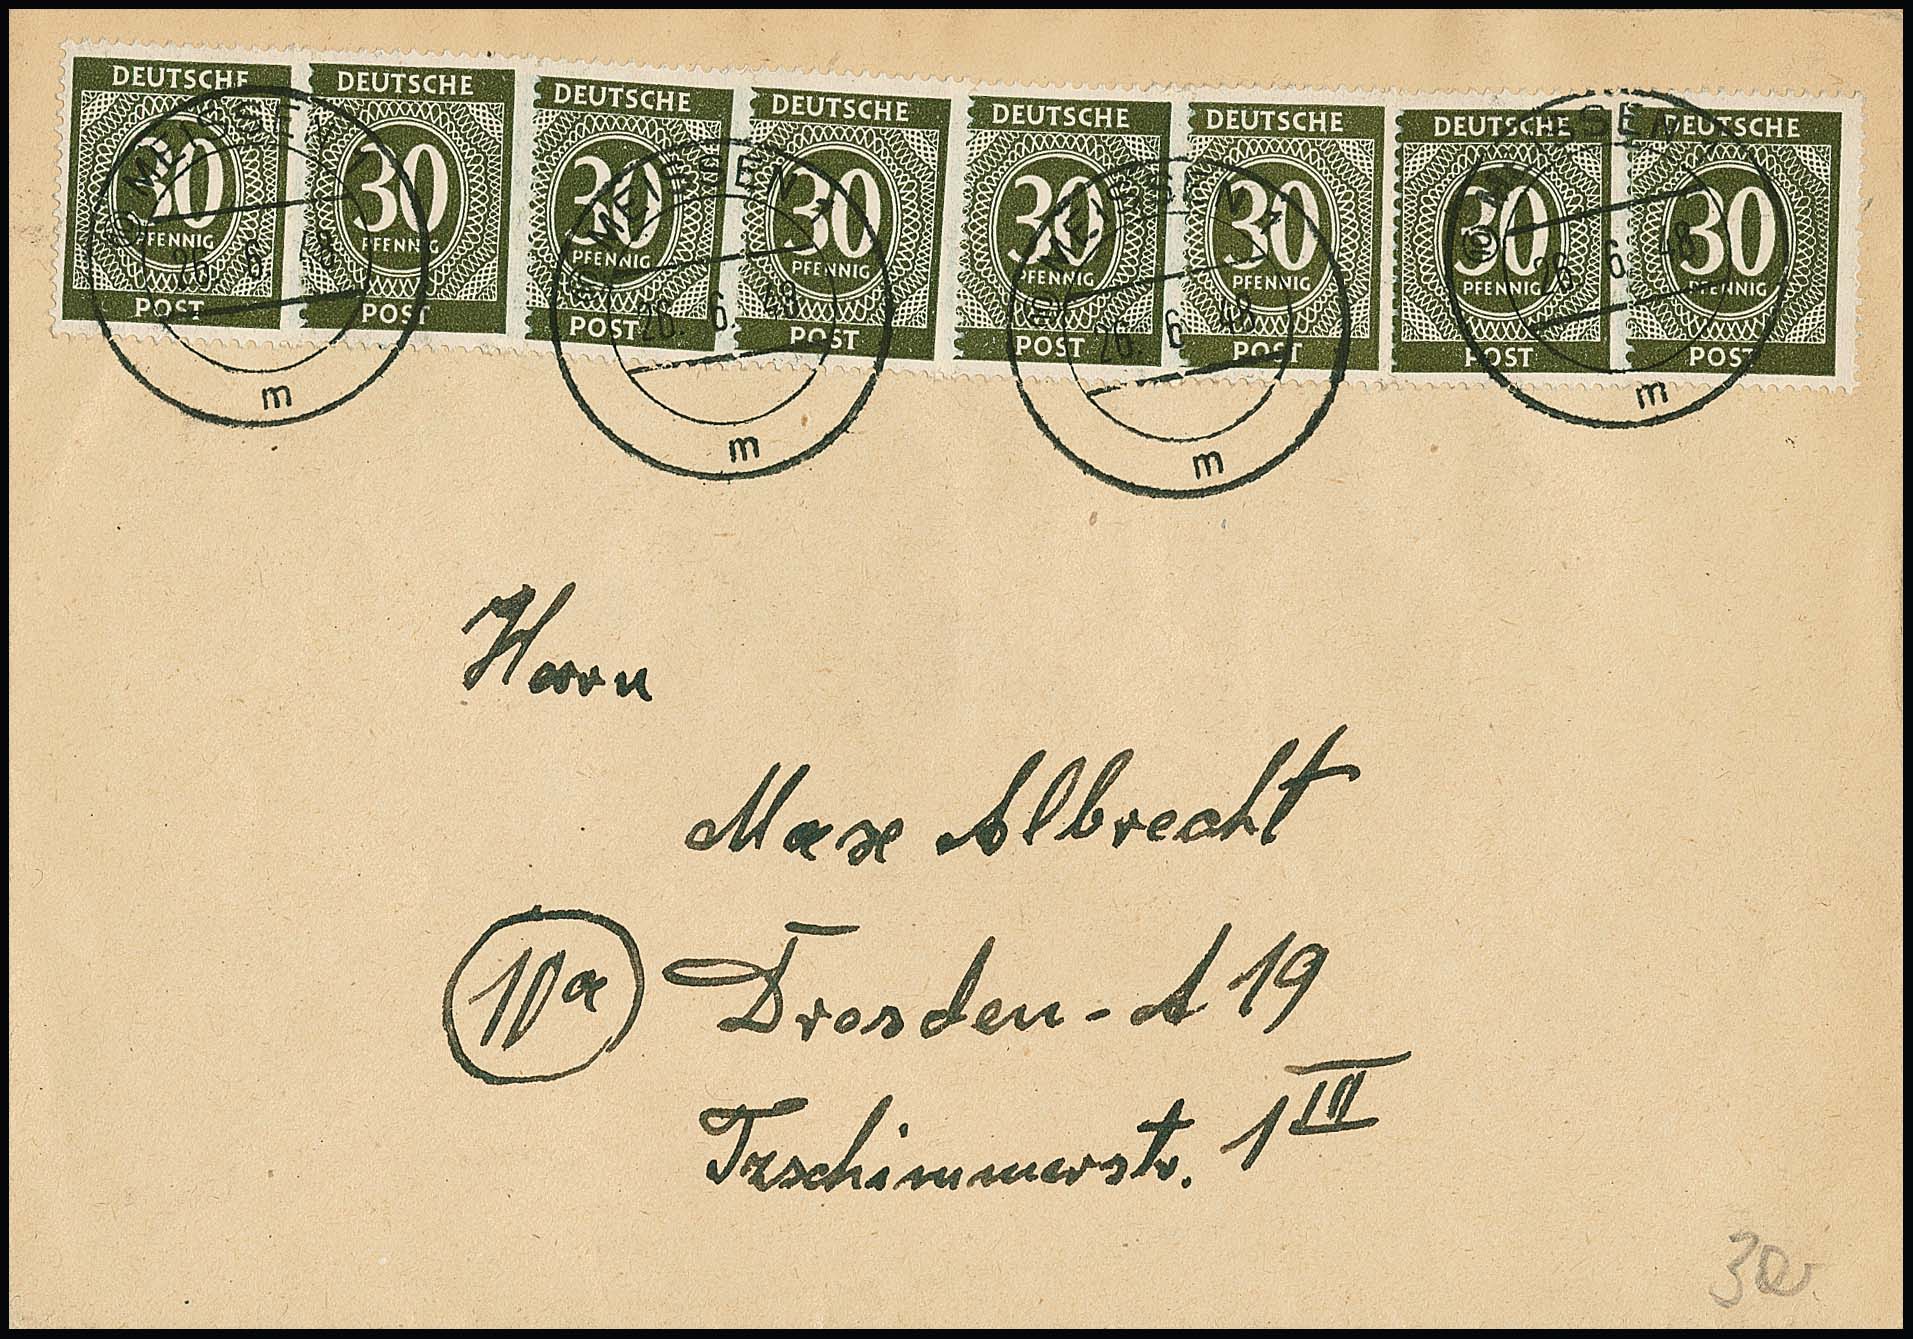 DEUTSCHE DEUTSCHE DEUTSCHE DEUTSCHE DEUTSCHE DEUTSCHE DEUTSCHE DEUTSCHE
30 30 30 30 30 30 30 30
PFENNIG PFENNIG PFENNIG PFENNIG PFENNIG PFENNIG PFENNIG PFENNIG
POST POST POST POST POST POST POST POST
MEISSEN 1 MEISSEN 1 MEISSEN 1 MEISSEN 1
26. 6. 48 26. 6. 48 26. 6. 48 26. 6. 48
m m m m
Herrn
Max Albrecht
10a Dresden-A 19
Tzschimmerstr. 1 III